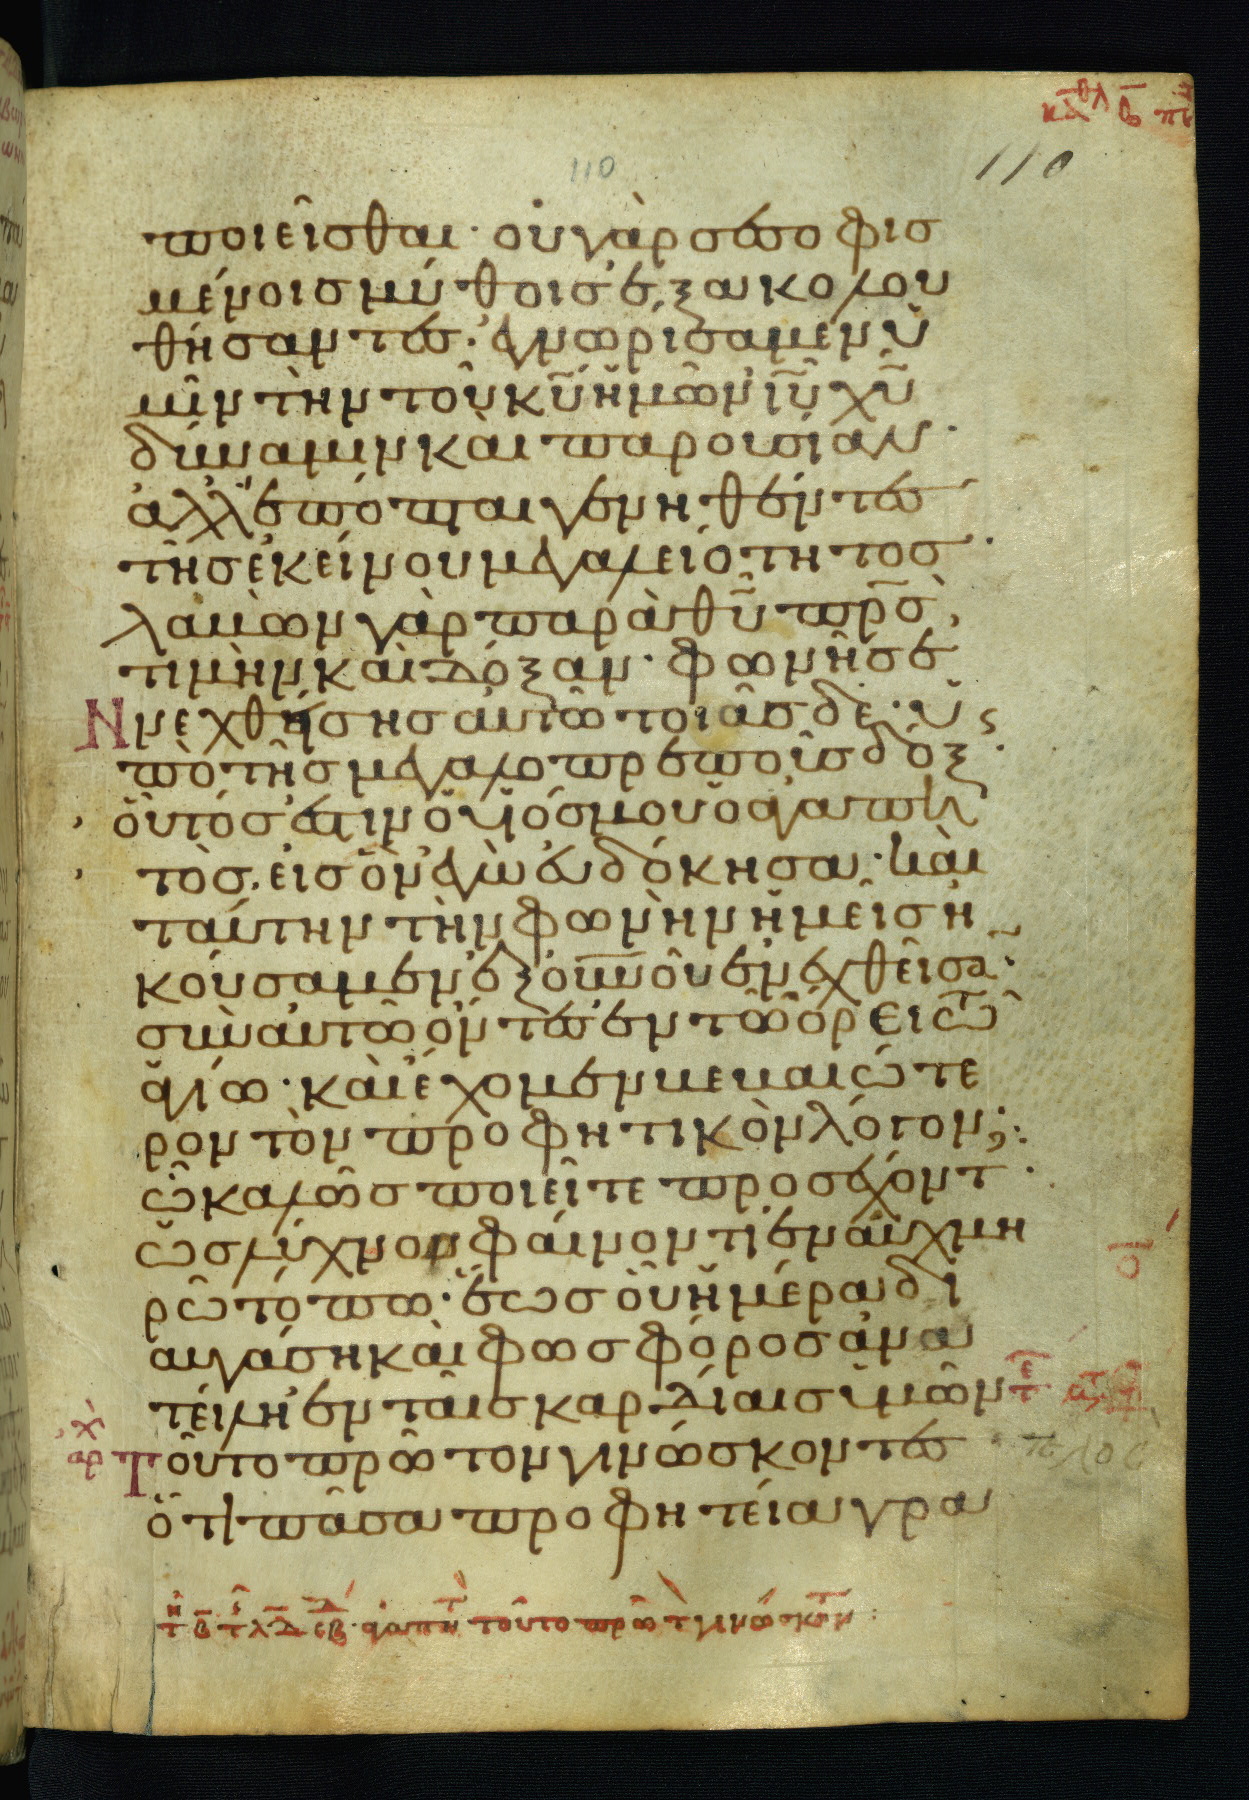 110
110
ποιεῖσθαι· οὐ γὰρ σεσοφισ
μένοις μύθοις ἐξακολου
θήσαντες· ἐγνωρίσαμεν ὑ
μῖν τὴν τοῦ κ̅υ̅ ἡμῶν ἰ̅υ̅ χ̅υ̅
δύναμιν καὶ παρουσίαν·
ἀλλ' ἐπόπται γενηθέντες
τῆς ἐκείνου μεγαλειότητος·
λαβὼν γὰρ παρὰ θ̅υ̅ π̅ρ̅ς̅,
τιμὴν καὶ δόξαν· φωνῆς ἐ
νεχθήσης αὐτῶ τοιᾶσδε· ὑ
πὸ τῆς μεγαλοπρεποῦς δόξ·
οὗτός ἐστιν ὁ υἱός μου ὁ ἀγαπη
τὸς, εἰς ὃν ἐγὼ εὐδόκησα· καὶ
ταύτην τὴν φωνὴν ἡμεῖς ἠ
κούσαμεν ἐξ ο̅υ̅ν̅οῦ ἐνεχθεῖσα·
σὺν αὐτῶ ὄντες ἐν τῶ ὄρει τῶ
ἁγίω· καὶ ἔχομεν βεβαιώτε
ρον τὸν προφητικὸν λόγον,:
ὧ καλῶς ποιεῖτε προσέχοντ·
ὡς λύχνον φαίνοντι ἐν αὐχμη
ρῶ τόπω· ἕως οὗ ἡμέρα δι
αυγάση καὶ φωσφόρος ἀνα
τείλη ἐν ταῖς καρδίαις ὑμῶν
Τοῦτο πρῶτον γινώσκοντες
ὅτι πᾶσα προφητεία γρα
τοῦτο πρῶτ γινώσκον